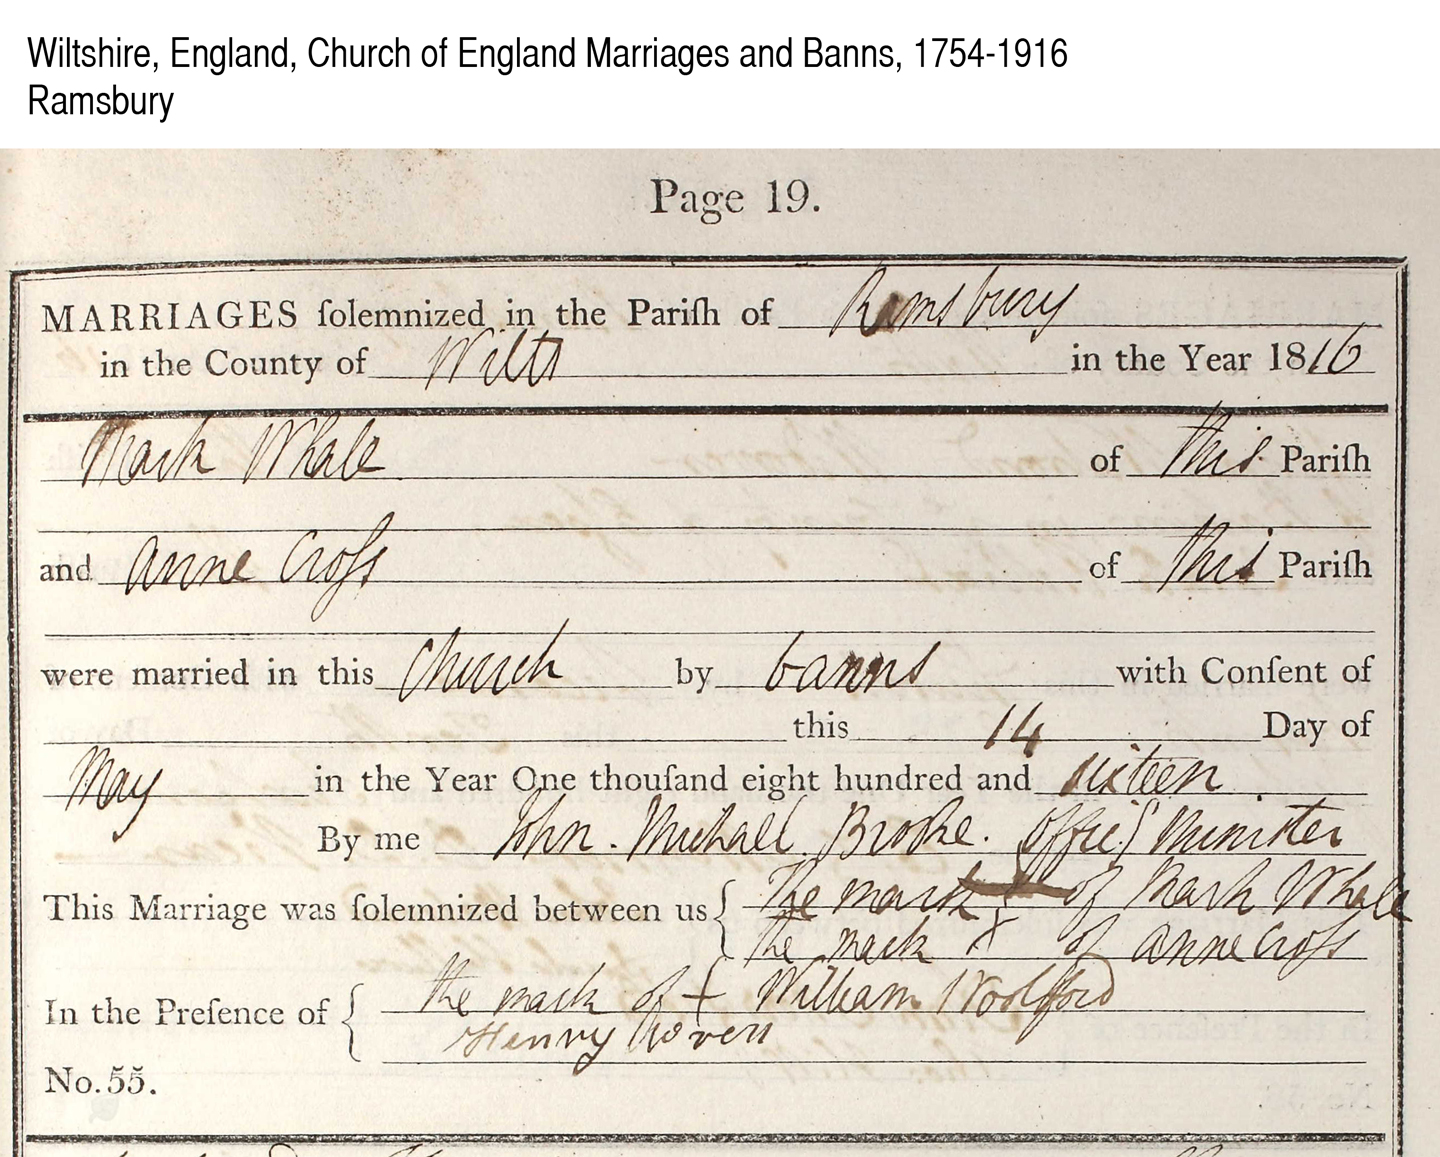 Wiltshire, England, Church of England Marriages and Banns, 1754-1916
Ramsbury
Page 19.
MARRIAGES ſolemnized in the Pariſh of Ramsbury
in the County of Wilts in the Year 1816
Mark Whale of this Pariſh
and Anne Croſs of this Pariſh
were married in this Church by banns with Conſent of
this 14 Day of
May in the Year One thouſand eight hundred and sixteen
By me John. Michael Brooke. Offic.g Minister
This Marriage was ſolemnized between us { The mark of Mark Whale
the mark X of Anne Croſs
In the Preſence of { the mark of + William Woolford
Henry
No. 55.